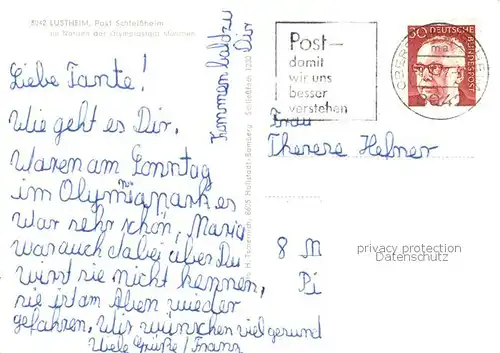 8042 LUSTHEIM, Post Schleißheim
im Norden der Olympiastadt München
Liebe Tante!
Wie geht es Dir.
Waren am Sonntag
im Olympiapark es
war sehr schön, Maria
war auch dabei aber Du
wirst sie nicht kennen,
sie ist am Aben wieder
gefahren, Wir wünschen viel gesund
Viele Grüße / Franz
Kommen bald zu
Dir
Post—
damit
wir uns
besser
verstehen
30 DEUTSCHE
BUNDESPOST
8042
Frau
Therese Hefner
8 M
Pi
privacy protection
Datenschutz